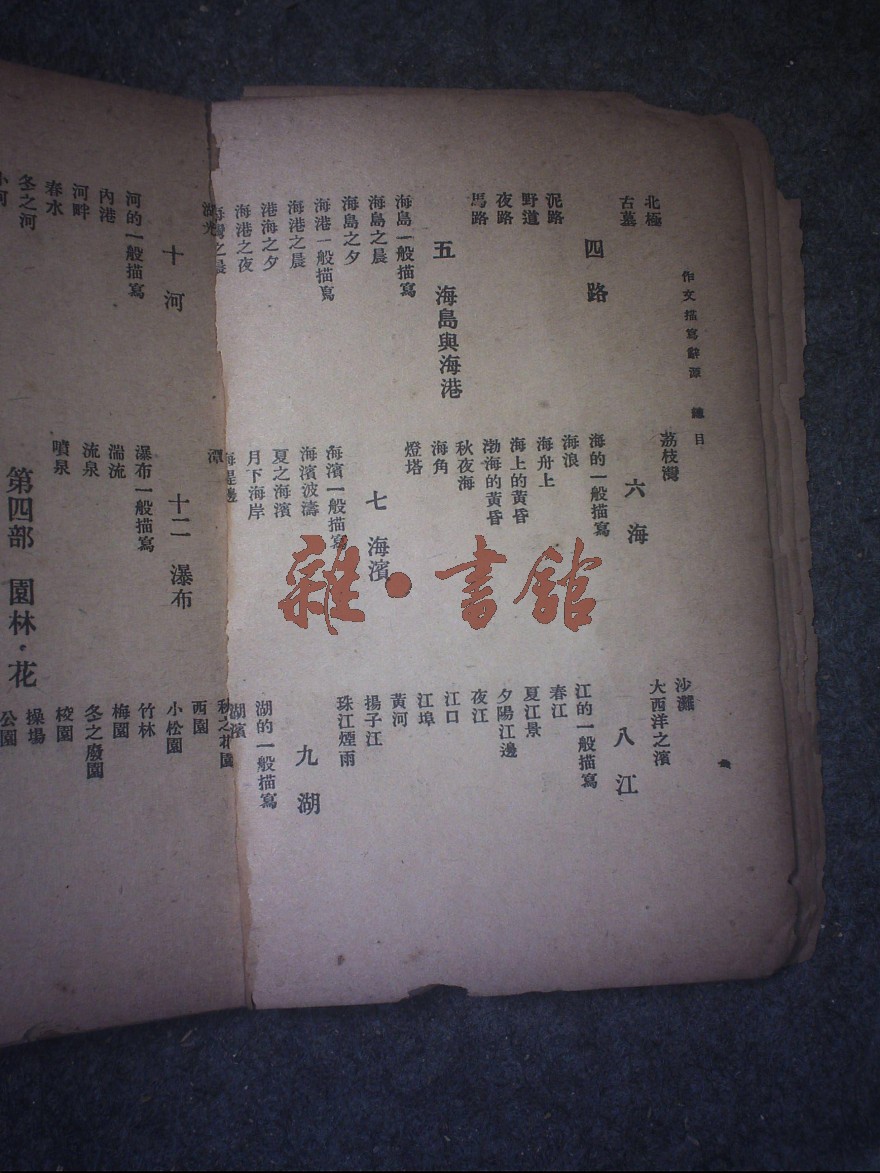 作文描寫辭源 總目
北極
古墓
四 路
泥路
野道
夜路
馬路
五 海島與海港
海島一般描寫
海島之晨
海島之夕
海港一般描寫
海港之晨
港海之夕
海港之夜
海灣之晨
荔枝灣
六 海
海的一般描寫
海浪
海舟上
海上的黃昏
渤海的黃昏
秋夜海
海角
燈塔
七 海濱
海濱一般描寫
海濱波濤
夏之海濱
月下海岸
海堤邊
沙灘
大西洋之濱
八 江
江的一般描寫
春江
夏江景
夕陽江邊
夜江
江口
江埠
黃河
揚子江
珠江煙雨
九 湖
湖的一般描寫
湖濱
湖光
十 河
河的一般描寫
內港
河畔
春水
冬之河
小河
潭
十二 瀑布
瀑布一般描寫
湍流
流泉
噴泉
第四部 園林·花
秋之花園
西園
小松園
竹林
梅園
冬之廢園
校園
操場
公園
雜·書館